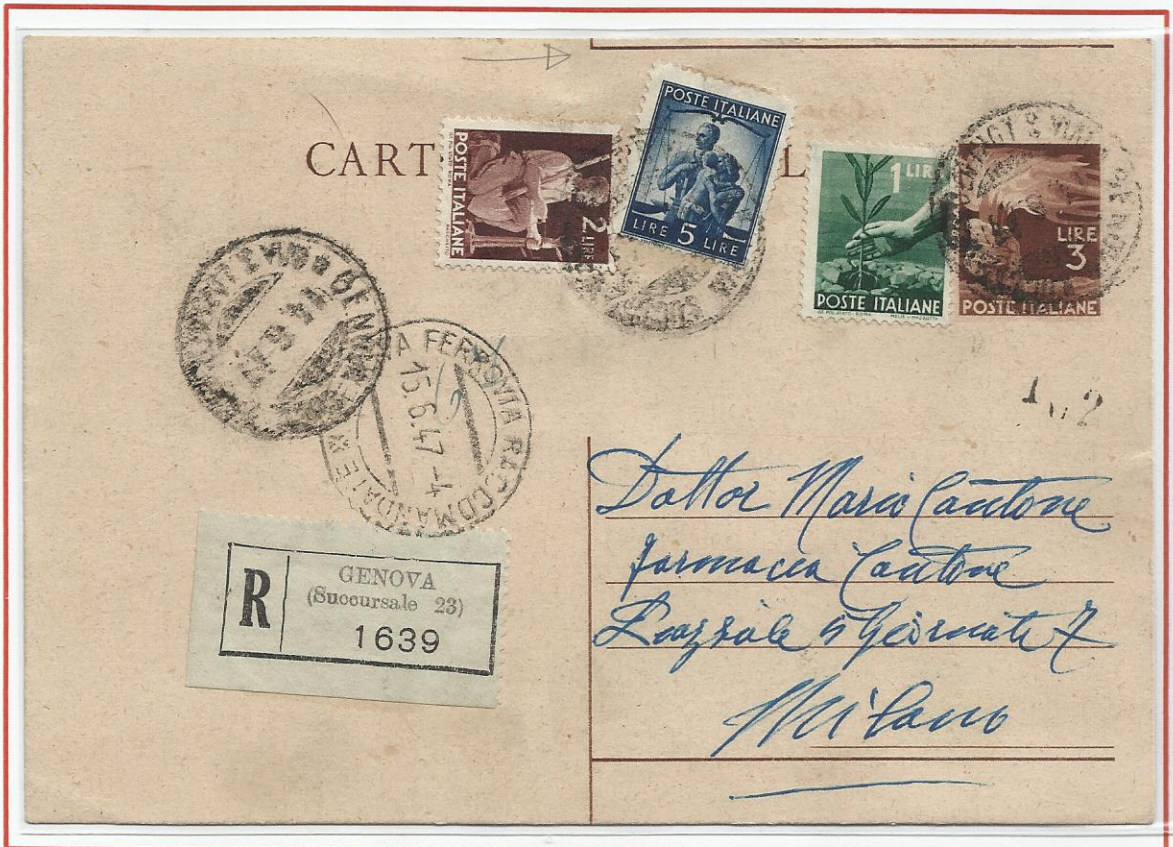 CART
L
POSTE ITALIANE
2 LIRE
POSTE ITALIANE
LIRE 5 LIRE
1 LIRE
POSTE ITALIANE
LIRE
3
POSTE ITALIANE
14 6 47
A FERROVIA RACCOMANDATE
15.6.47 -4
R
GENOVA
(Succursale 23)
1639
Dottor Mario Cantone
Farmacia Cantone
Piazzale 5 Giornate 7
Milano